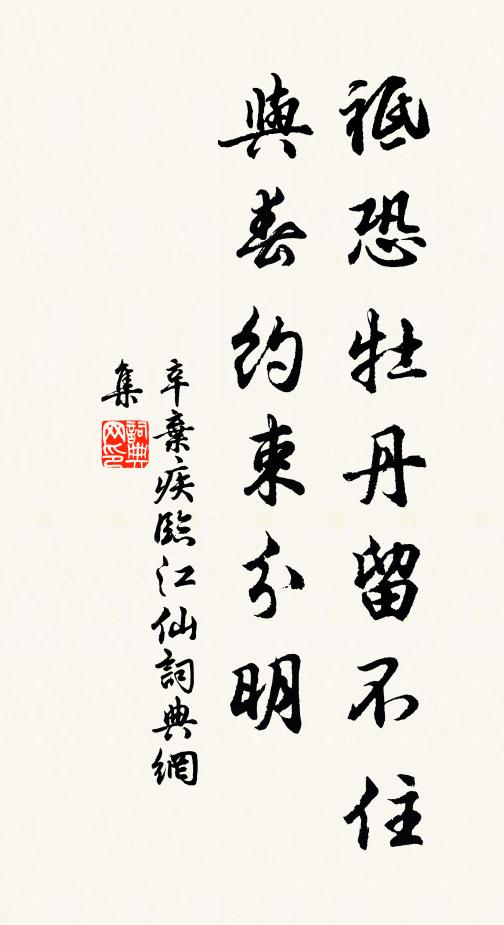 祗恐牡丹留不住
與春約束分明
辛棄疾臨江仙詞典網
集
詞典网印